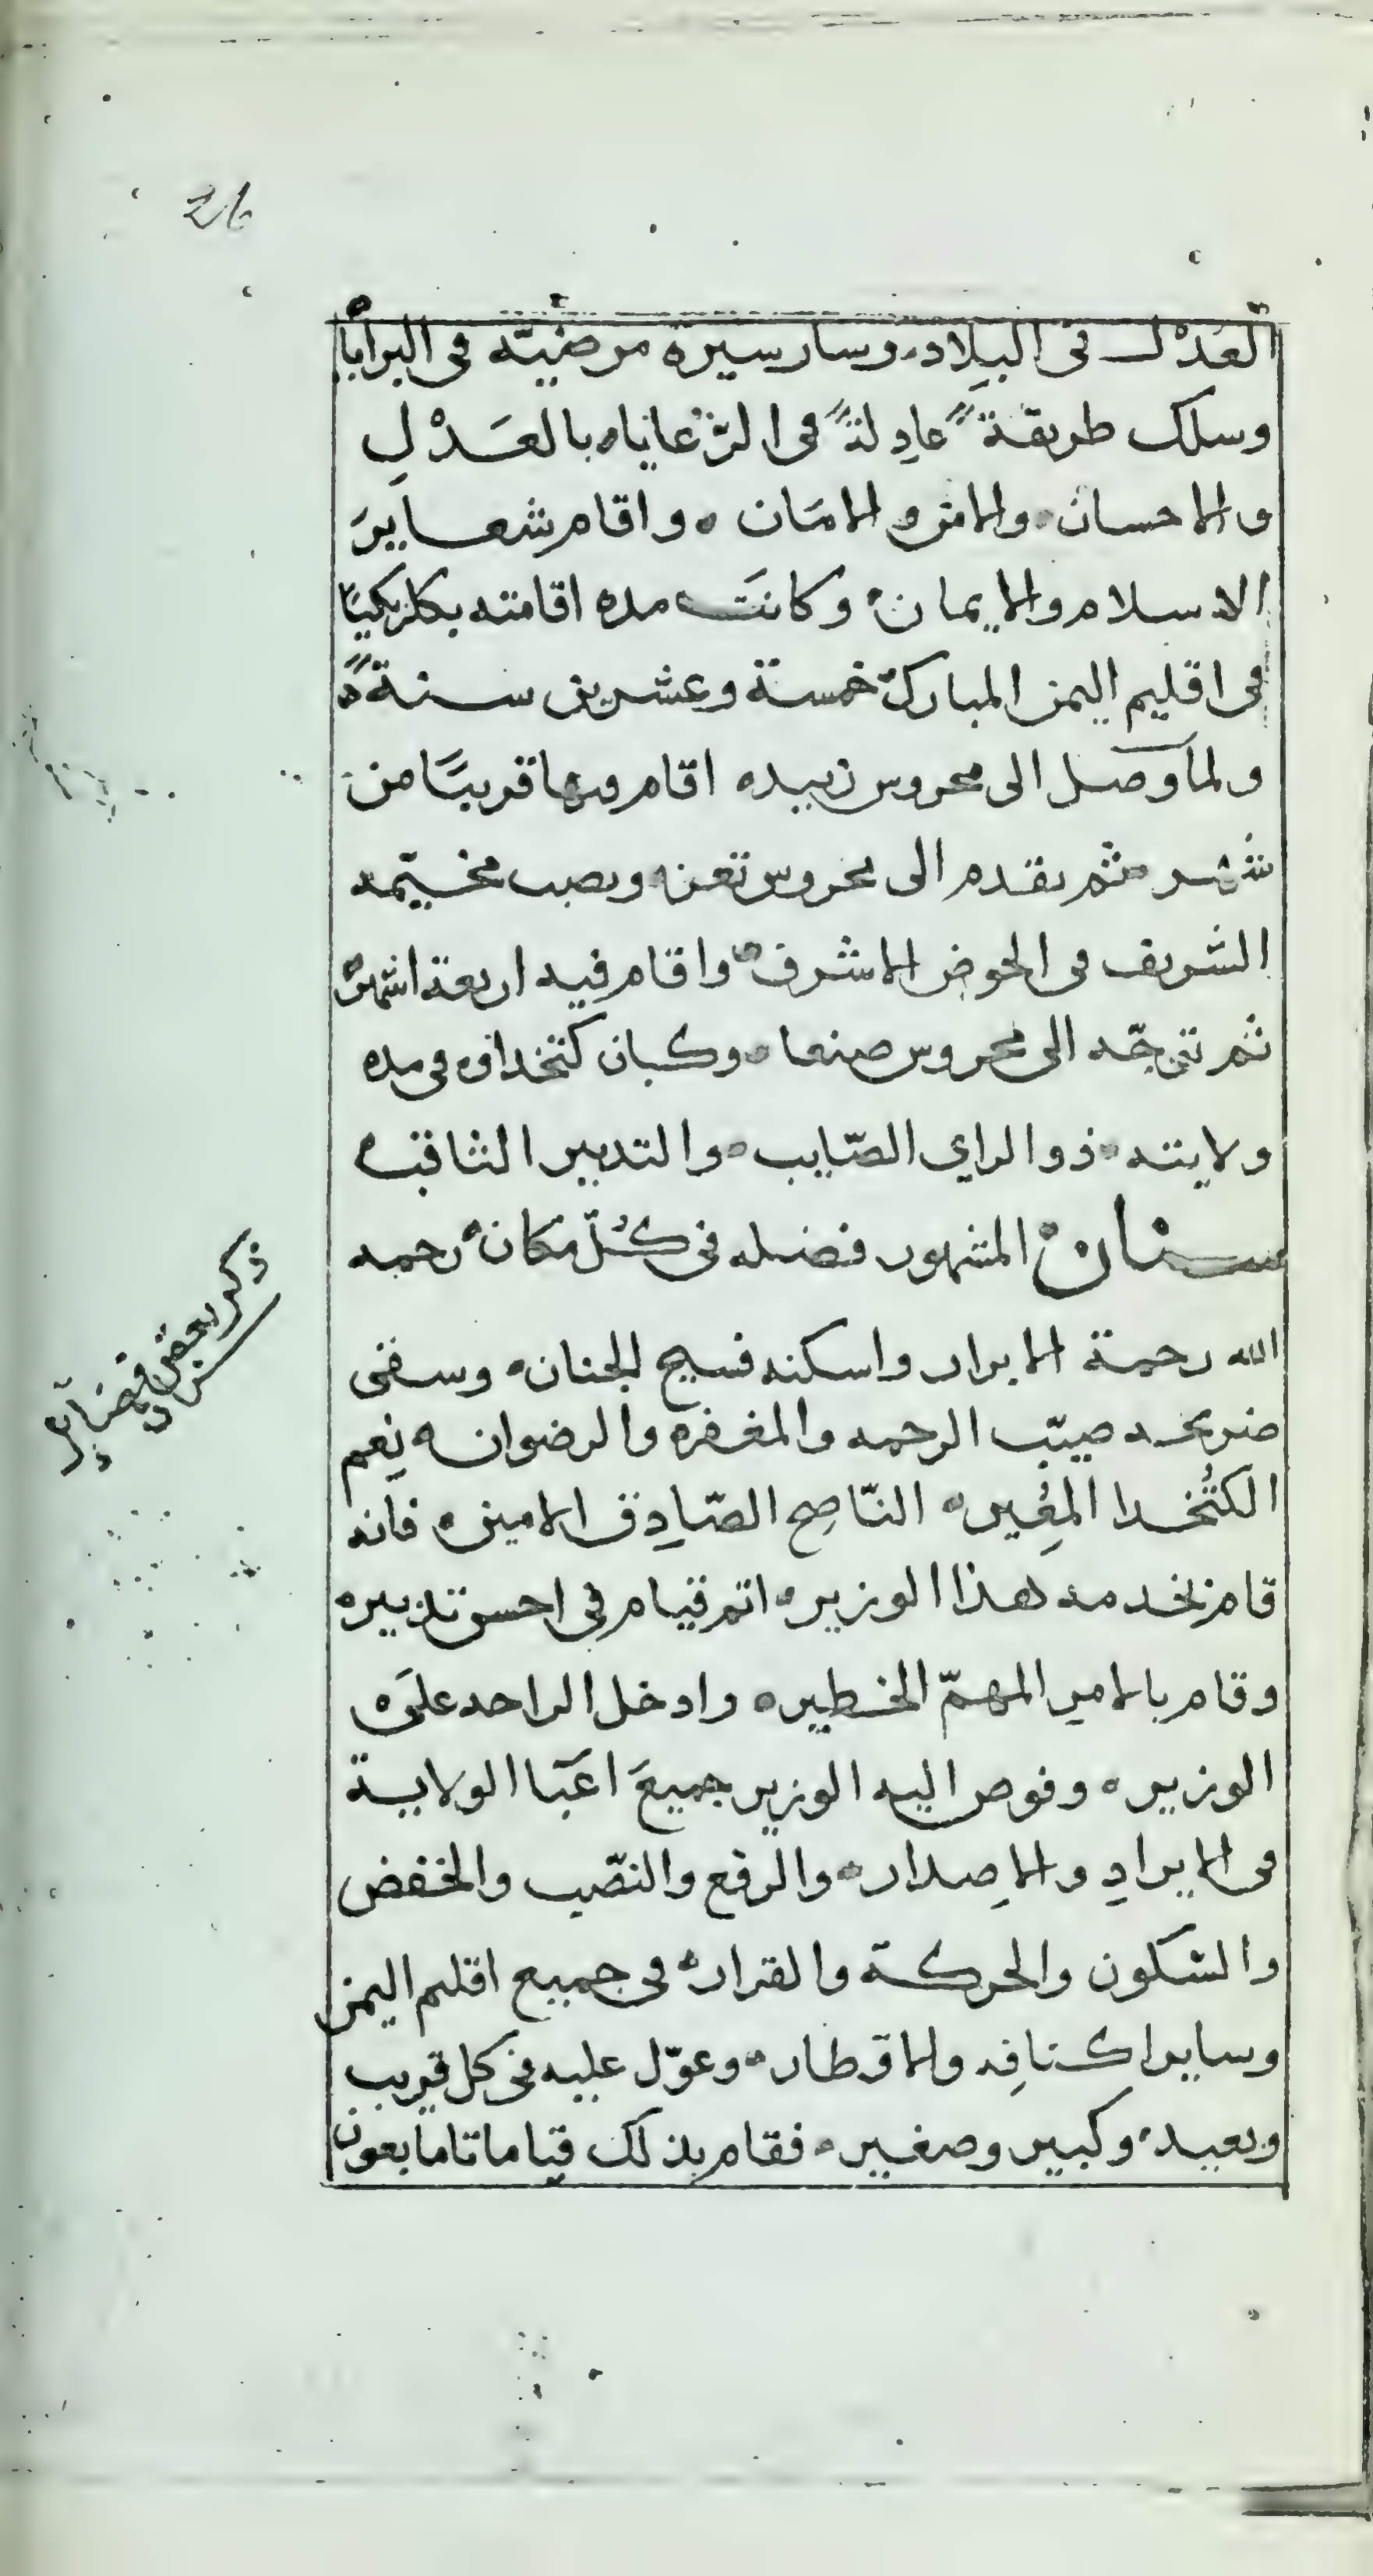 26
العَدْل في البِلاد، وسار سيرة مرضيّه في البرايا
وسلك طريقةً عادِلةً في الرّعايا، بالعَدْلِ
والاحسان، والامن والامَان، واقام شعايرَ
الاسلام والايمان، وكانَت مده اقامته بكلربكيًا
في اقليم اليمن المبارك خمسة وعشرين سنةً
ولما وصل الى محروس زبيد، اقام بها قريبًا من
شهر، ثم تقدم الى محروس تعز، ونصب مخيّمه
الشريف في الحوض الاشرف، واقام فيه اربعة اشهر
ثم توجّه الى محروس صنعا، وكان كتخداؤه في مده
ولايته، ذو الراي الصّايب، والتدبير الثاقب
سنان، المشهور فضله في كُلّ مكان، رحمه
الله رحمة الابرار واسكنه فسيح الجنان، وسقى
ضريحه صيّب الرحمه والمغفره والرضوان، نِعم
الكتُخدا المُعِين، النّاصِح الصّادِق الامين، فانه
قام بخدمه هذا الوزير، اتم قيام في احسن تدبير،
وقام بالامر المهمّ الخطير، وادخل الراحه على
الوزير، وفوض اليه الوزير جميعَ اعبَا الولاية
في الايرادِ والاِصدار، والرفع والنصّب والخفض
والسّكون والحركة والقرار، في جميع اقليم اليمن
وساير اكنافِه والاقطار، وعوّل عليه في كل قريب
وبعيد، وكبير وصغير، فقام بذلك قياما تاما بعون
ذكر بعض فضايل
سنان